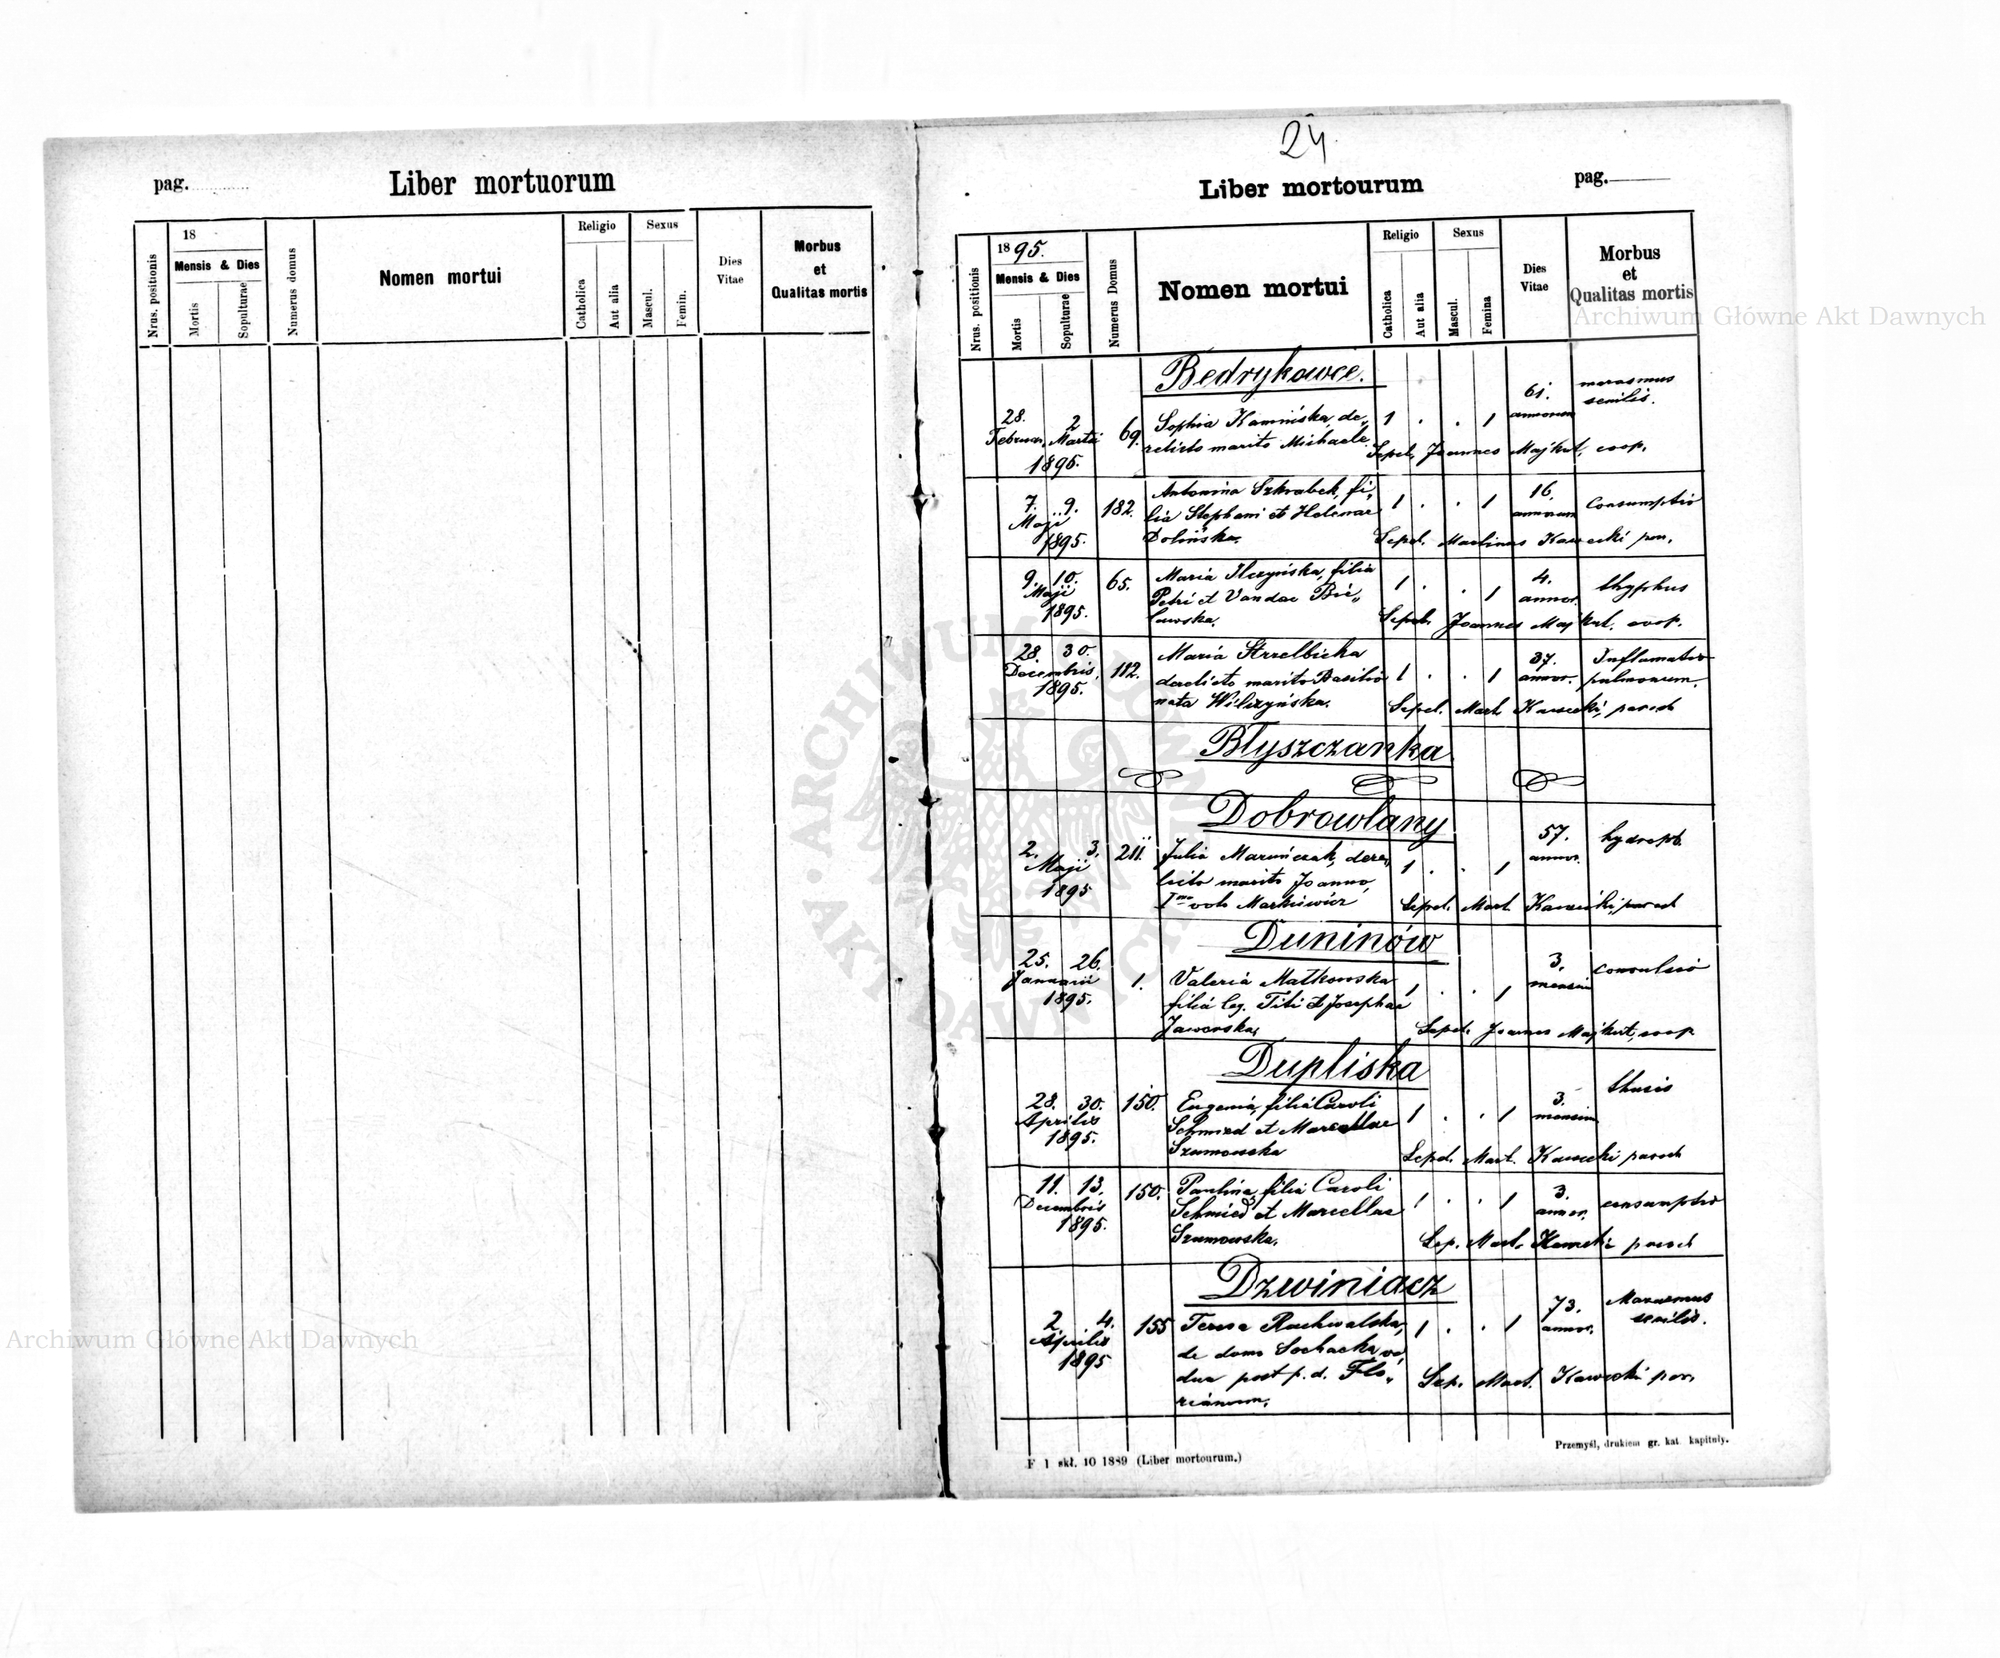 24.
pag.
Liber mortuorum
Nrus. positionis
18
Mensis & Dies
Mortis
Sopulturae
Numerus domus
Nomen mortui
Religio
Catholica
Aut alia
Sexus
Mascul.
Femin.
Dies
Vitae
Morbus
et
Qualitas mortis
Liber mortourum
pag.
Nrus. positionis
1895.
Mensis & Dies
Mortis
Sopulturae
Numerus Domus
Nomen mortui
Religio
Catholica
Aut alia
Sexus
Mascul.
Femina
Dies
Vitae
Morbus
et
Qualitas mortis
Archiwum Główne Akt Dawnych
Bedrykowce.
28. 2 69. Sophia Kamińska, de„ 1 . . 1 61. marasmus
Februar. Martii relicto marito Michaele annorum senilis.
1895. Sepel. Joannes Majkut, coop.
7. 9. 182. Antonina Szkrabek, fi„ 1 . . 1 16. consumptio
Maji lia Stephani et Helenae annorum
1895. Dolińska. Sepel. Martinus Kawecki par.
9. 10. 65. Maria Ilczyńska, filia 1 . . 1 4. thyphus
Maji Petri et Vandae Bie„ annor.
1895. lawska. Sepel. Joannes Majkut, coop.
28. 30. 182. Maria Strzelbicka 1 . . 1 37. Inflamatio
Decembris, derelicto marito Basilio annor. pulmonum.
1895. nata Wilczyńska. Sepel. Mart. Kawecki, paroch
Błyszczanka
Dobrowlany
2. 3. 211. Julia Maruńczak, dere„ 1 . . 1 57. hydrops.
Maji licto marito Joanno, annor.
1895 Imo voto Markiewicz Sepel. Mart. Kawecki, paroch
Duninów
25. 26. 1. Valeria Matkowska 1 . . 1 3. convulsio
Januarii filia leg. Titi et Josephae mensium
1895. Jaworska, Sepel. Joannes Majkut, coop
Dupliska
28. 30. 150. Eugenia, filia Caroli 1 . . 1 3. thusis
Aprilis Schmied et Marcellae mensium
1895. Szumowska Sepel. Mart. Kawecki paroch
11. 13. 150. Paulina, filia Caroli 1 . . 1 3. consumptio
Decembris Schmied et Marcellae annor.
1895. Szumowska. Sep. Mart. Kawecki paroch
Dzwiniacz
2. 4. 155 Teresa Ruchwalska, 1 . . 1 73. Marasmus
Aprilis de domo Sochacka vi„ annor. senilis.
1895 dua post p. d. Flo„ Sep. Mart. Kawecki par.
rianum.
F 1 skł. 10 1889 (Liber mortourum.)
Przemyśl, drukiem gr. kat. kapituły.
Archiwum Główne Akt Dawnych
ARCHIWUM GŁÓWNE AKT DAWNYCH